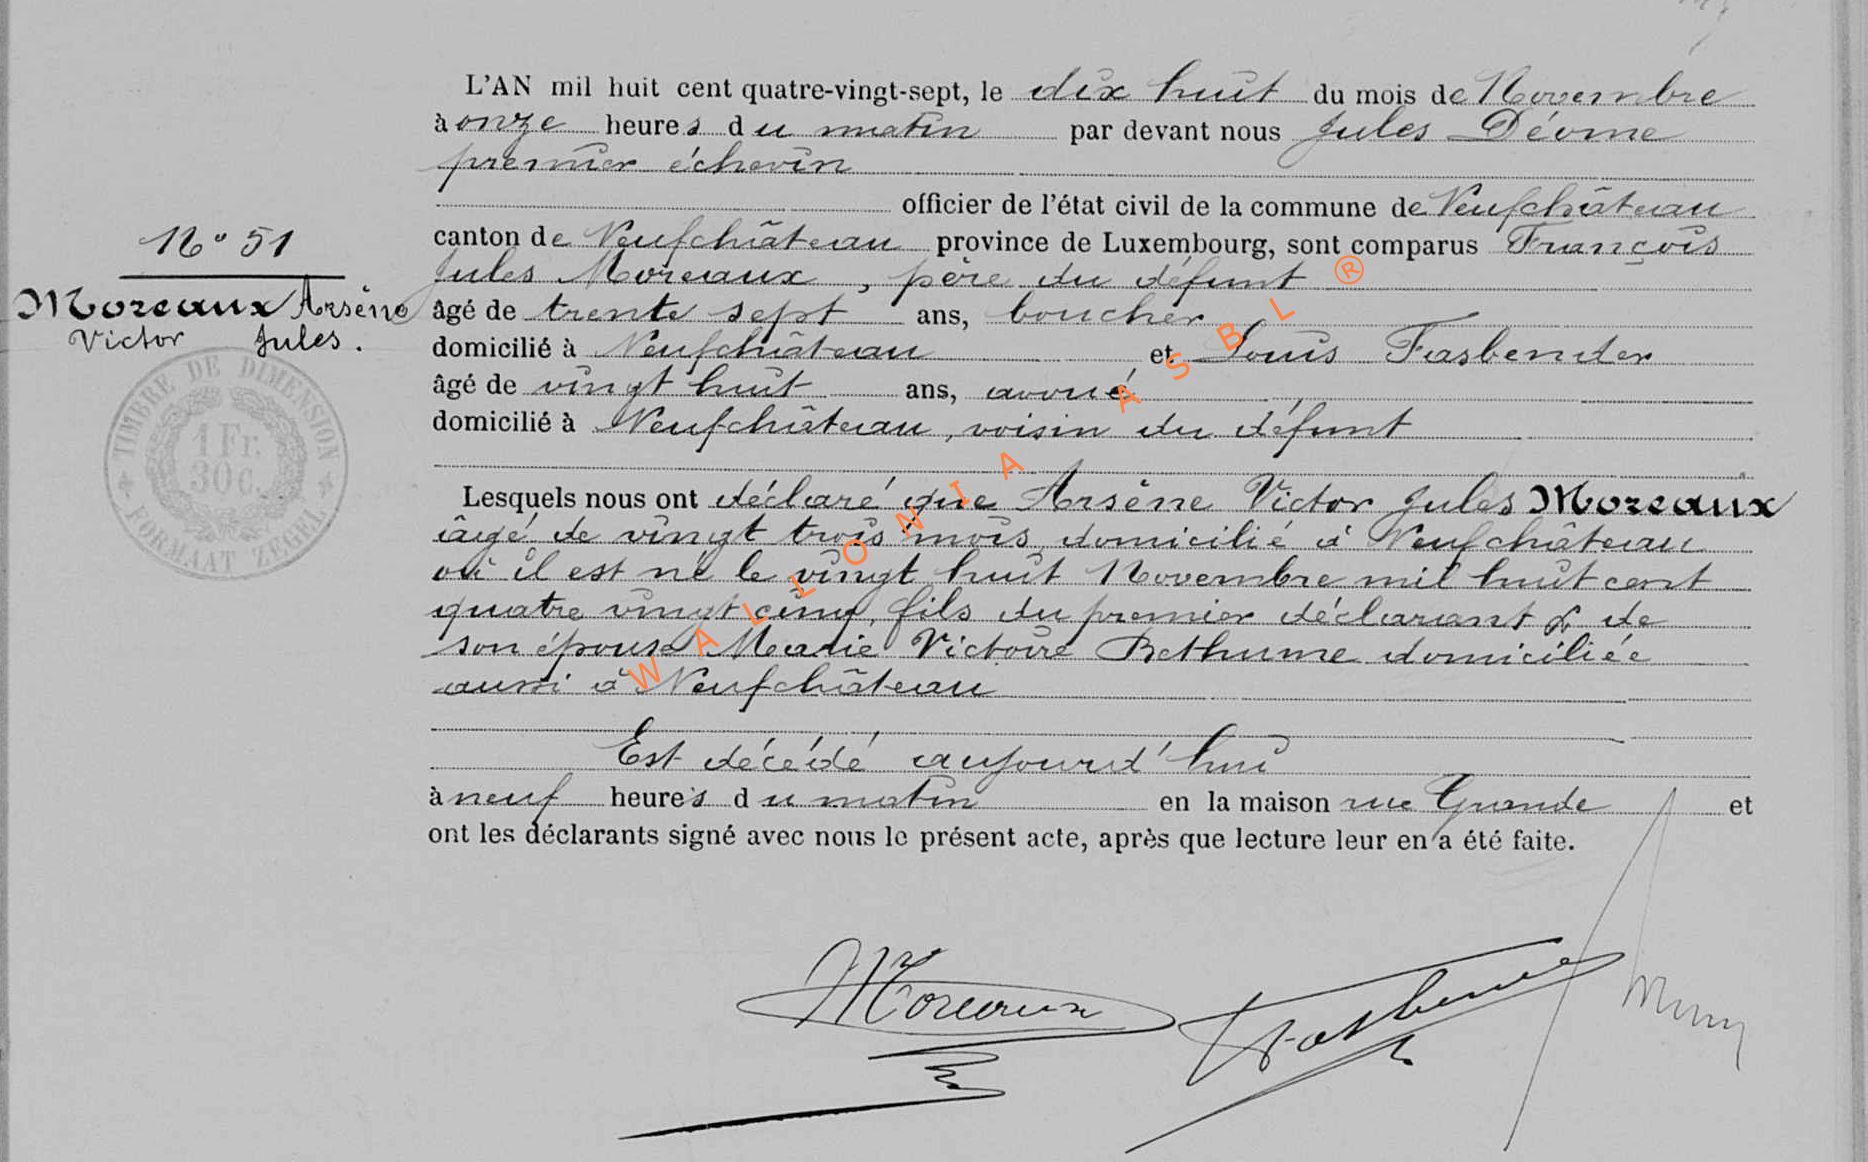 L'AN mil huit cent quatre-vingt-sept, le dix huit du mois de Novembre
à onze heures du matin par devant nous Jules Déome
premier échevin
officier de l'état civil de la commune de Neufchâteau
N° 51
canton de Neufchâteau province de Luxembourg, sont comparus François
Jules Moreaux, père du défunt
Moreaux Arsène
Victor Jules.
âgé de trente sept ans, boucher
domicilié à Neufchâteau et Louis Fasbender
âgé de vingt huit ans, avoué
domicilié à Neufchâteau, voisin du défunt
TIMBRE DE DIMENSION
1 Fr.
30 C.
FORMAAT ZEGEL
Lesquels nous ont déclaré que Arsène Victor Jules Moreaux
âgé de vingt trois mois, domicilié à Neufchâteau
où il est né le vingt huit Novembre mil huit cent
quatre vingt cinq, fils du premier déclarant & de
son épouse Marie Victoire Bethume domiciliée
aussi à Neufchâteau
Est décédé aujourd'hui
à neuf heures du matin en la maison rue Grande et
ont les déclarants signé avec nous le présent acte, après que lecture leur en a été faite.
Moreaux Fasbender
WALLONIA ASBL ®